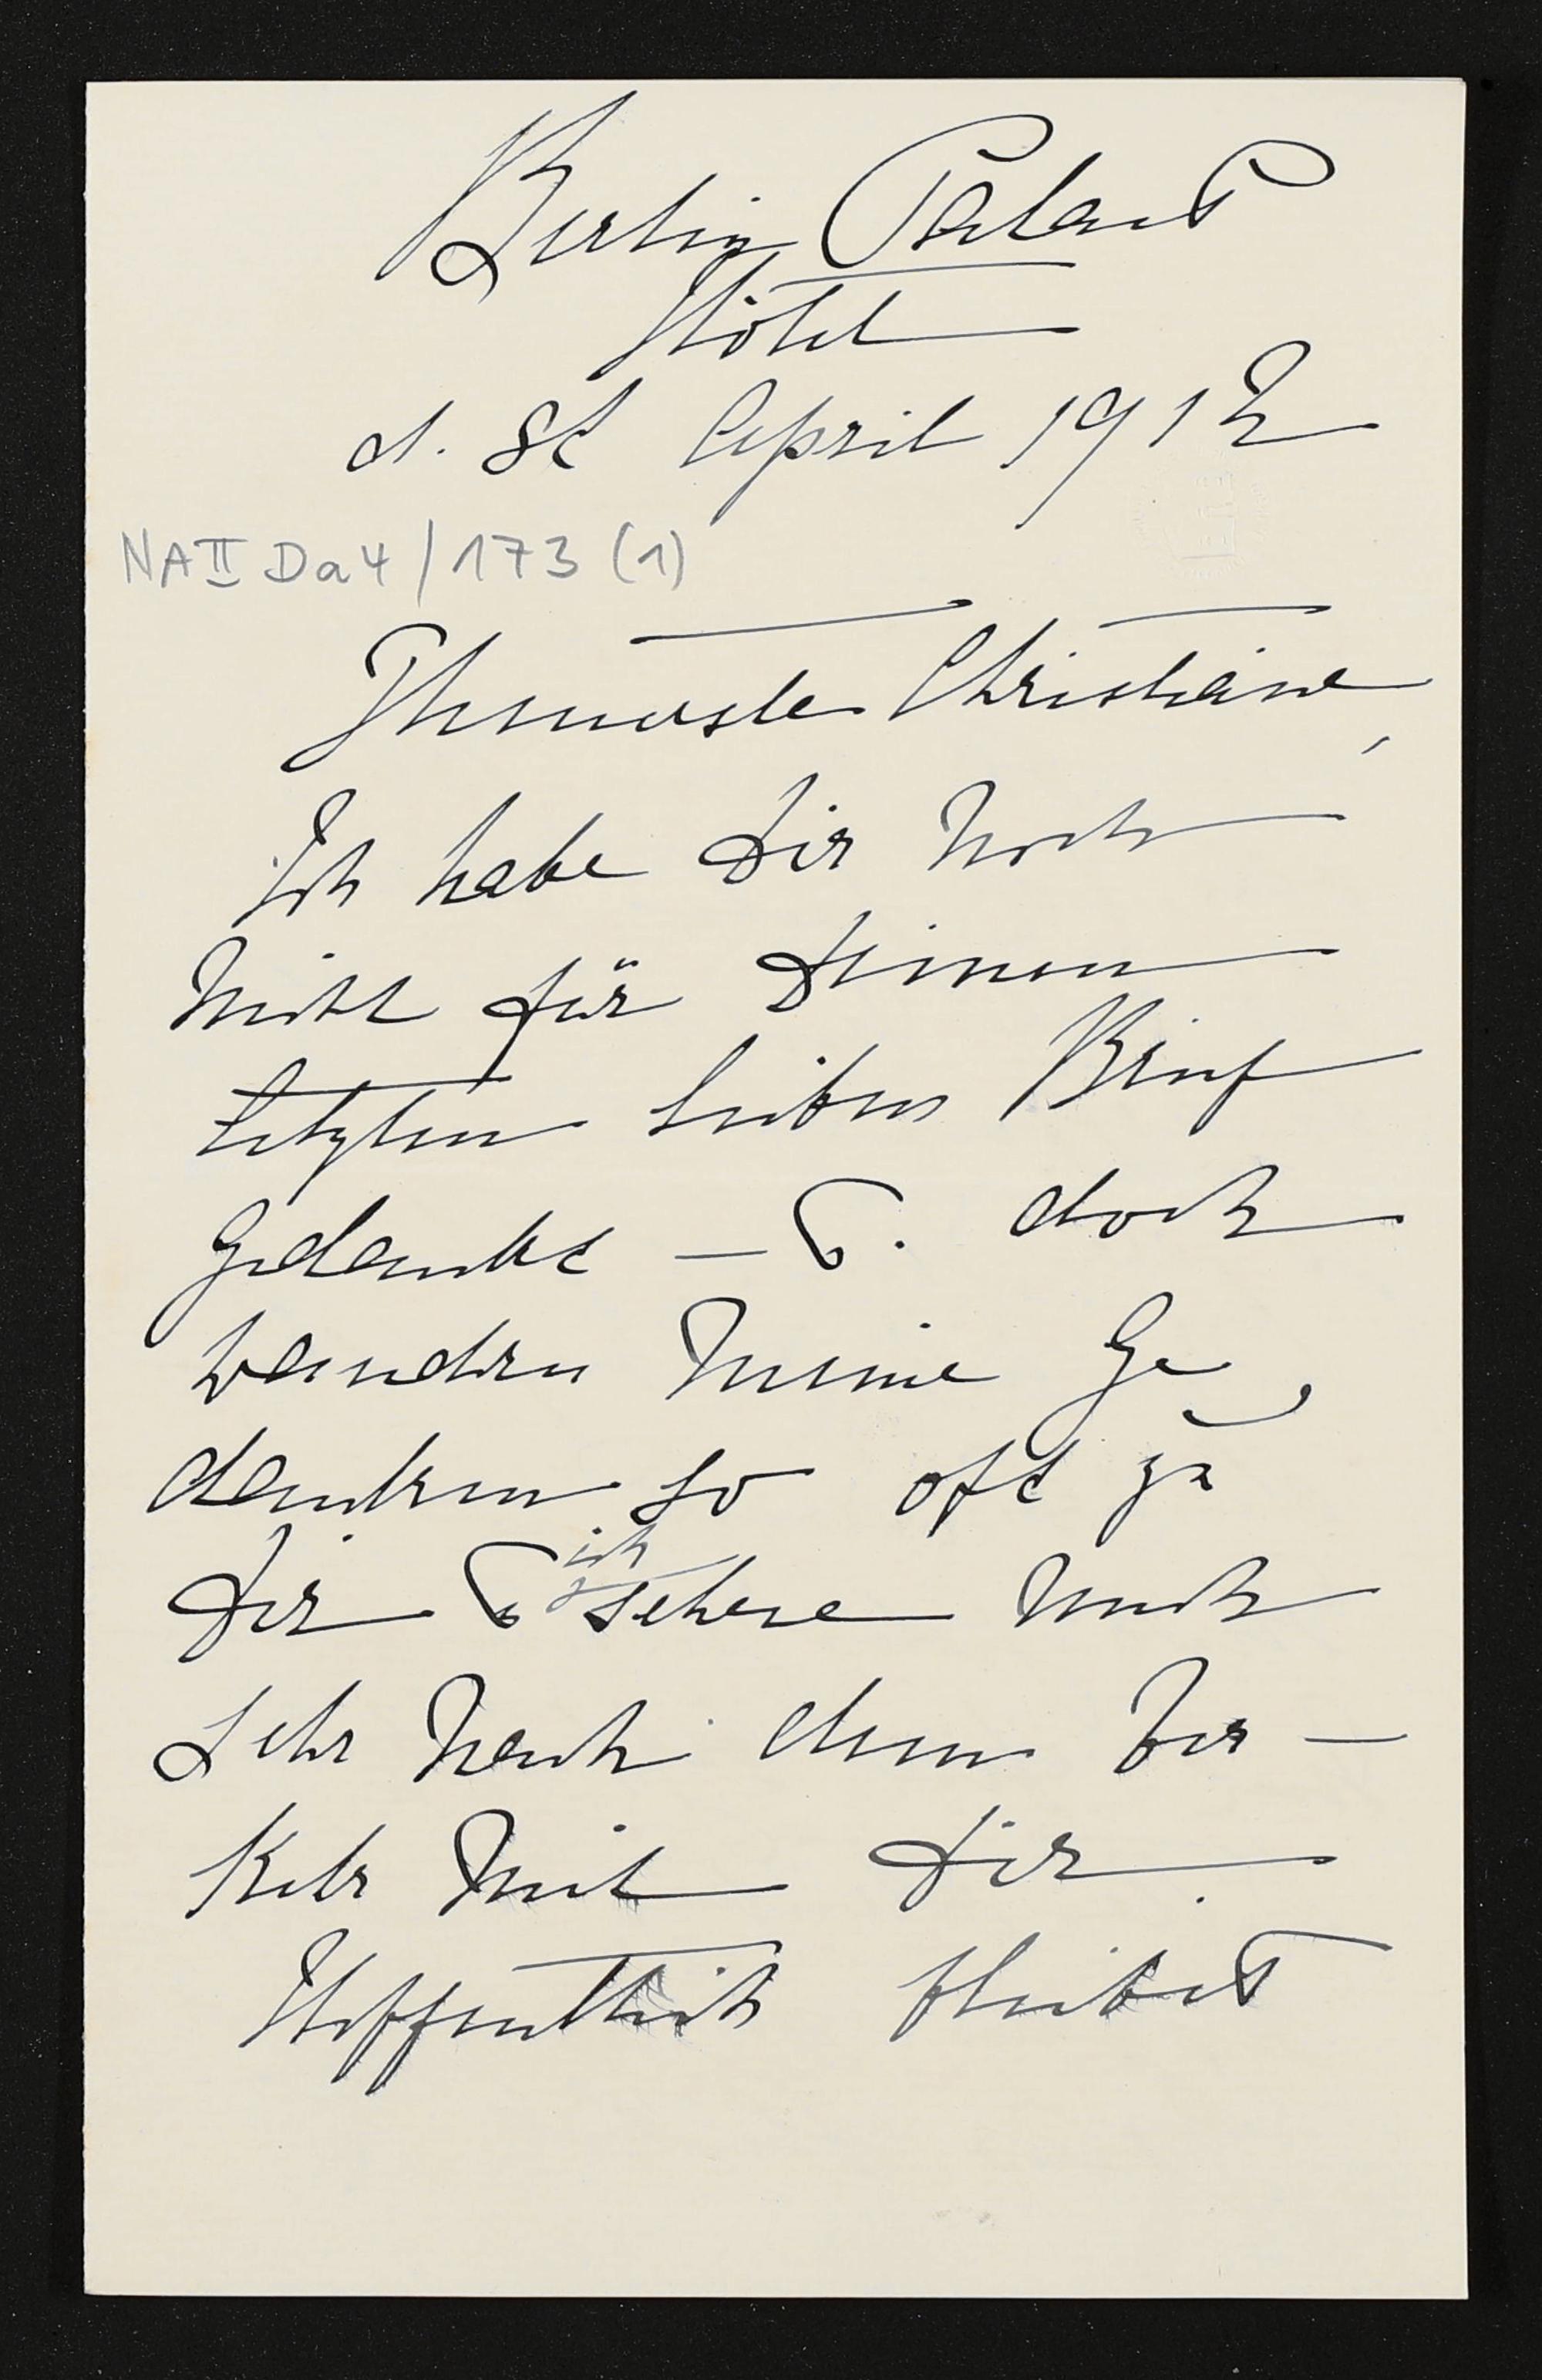 Berlin Palast
Hôtel
d. 8t April 1912
NA II Da 4/173 (1)
Theuerste Christiane,
Ich habe Dir noch
nicht für Deinen
letzten lieben Brief
gedankt – u. doch
wandern meine Ge
danken so oft zu
Dir u ich sehne mich
sehr nach dem Ver–
kehr mit Dir.
Hoffentlich bleibst